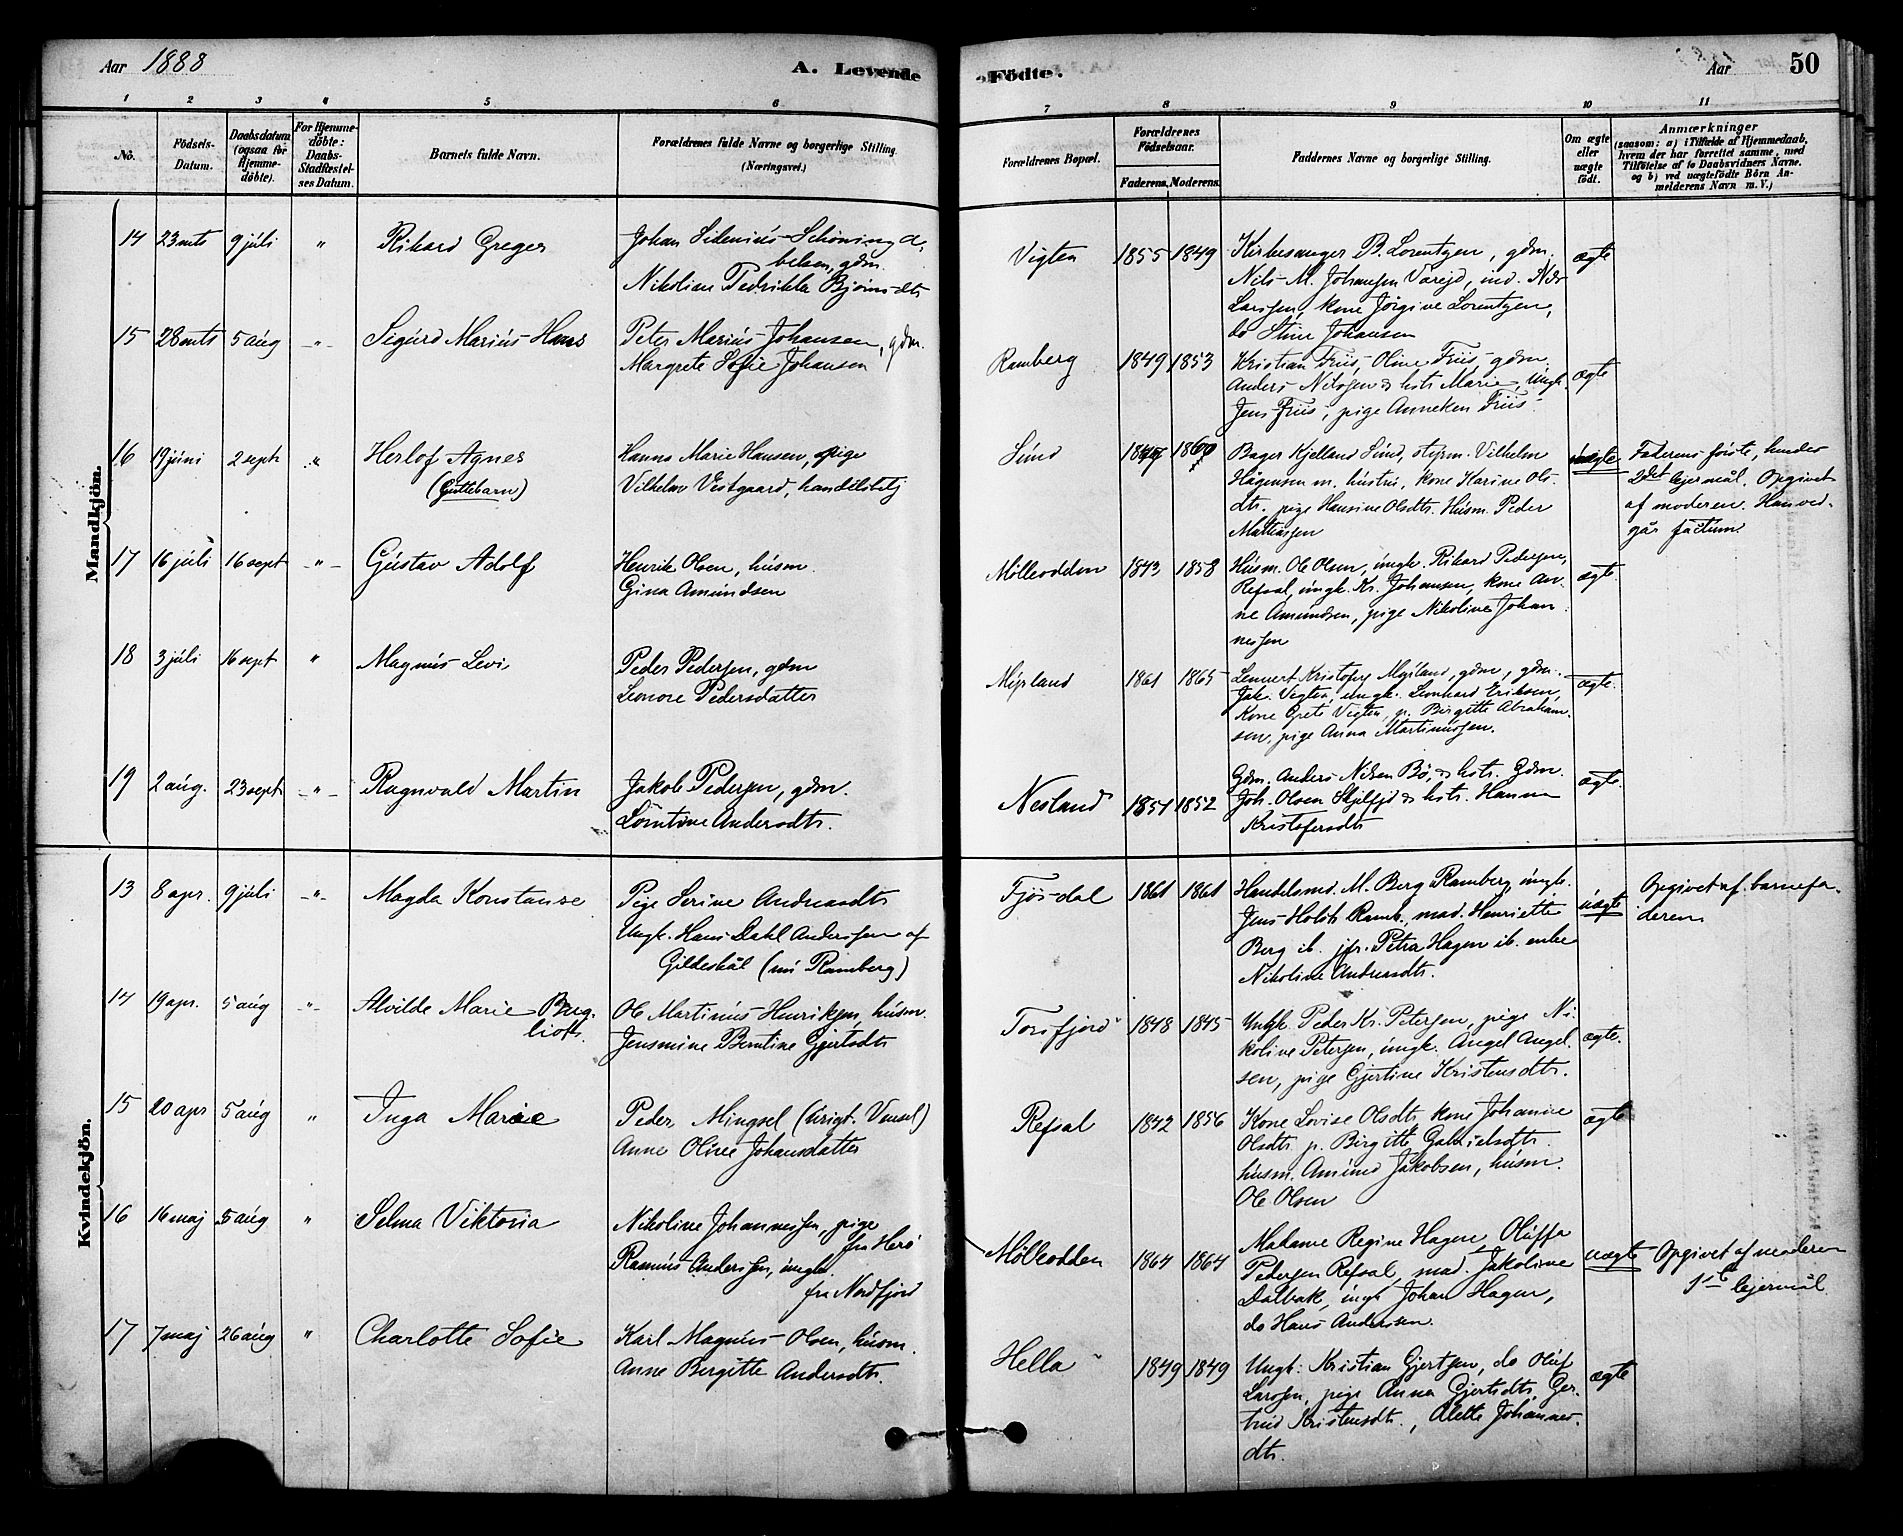 Aar 1888
A. Levende
Födte.
Aar
50
1 2 3 4 5 6 7 8 9 10 11
No.
Födsels-
Datum.
Daabsdatum
(ogsaa for
Hjemme-
döbte).
For Hjemme-
döbte:
Daabs-
Stadfæstel-
ses Datum.
Barnets fulde Navn.
Forældrenes fulde Navne og borgerlige Stilling.
(Næringsvei.)
Forældrenes Bopæl.
Forældrenes
Födselsaar.
Faderens. Moderens.
Faddernes Navne og borgerlige Stilling.
Om ægte
eller
uægte
födt.
Anmærkninger
(saasom: a) i Tilfælde af Hjemmedaab,
hvem der har forrettet samme, med
Tilföielse af to Daabsvidners Navne.
og b) ved uægtefödte Börn An-
melderens Navn m. V.)
Mandkjön.
14 23 mts 9 júli " Rikard Greger
Johan Sidenius Schöning A-
belsen, gdm.
Nikoline Fredrikke Björnsdtr
Vigten 1855 1849
Kirkesanger B. Lorentzen, gdm.
Nils M. Johansen Vareid, ind. Nils
Larssen, kone Jörgine Lorentzen,
do Stine Johansen
ægte
15 28 mts 5 aúg " Sigúrd Mariús Hans
Peter Mariús Johansen, gdm.
Margrete Sofie Johansen
Ramberg 1849 1853
Kristian Friis, Oline Friis, gdm.
Anders Nilssen & hstr Marie, úngk.
Jens Friis, pige Anneken Friis
ægte
16 19 júni 2 sept " Herlof Agnes
(Guttebarn)
Hanna Marie Hansen, pige
Vilhelm Vestgaard, handelsbetj
Súnd 1860
Bager Kjelland Súnd, styrm. Vilhelm
Hågensen m. hústrú, kone Karine Ols-
dtr. pige Hansine Olsdtr. Húsm. Peder
Mathiassen
uægte
Faderens förste, hendes
2det lejermål. Opgivet
af moderen. Han ved-
går factum
17 16 júli 16 sept " Gústav Adolf
Henrik Olsen, húsm.
Gina Amúndsen
Mölleodden 1843 1858
Húsm. Ole Olsen, úngk. Rikard Pedersen,
Refsal, úngk. Kr. Johansen, kone An-
ne Amúndsen, pige Nikoline Johan-
nessen
ægte
18 3 júli 16 sept " Magnús Levi
Peder Pedersen, gdm
Leonore Pedersdatter
Myrland 1861 1865
Lennert Kristofers Myrland, gdm, gdm.
Jak. Vigten, úngk. Leonhard Eriksen,
Kone Grete Vigten, p. Birgitte Abraham-
sen, pige Anna Martinússen.
ægte.
19 2 aúg. 23 sept " Ragnvald Martin
Jakob Pedersen, gdm.
Lorntine Andersdtr.
Nesland 1851 1852
Gdm. Anders Nilsen Bö, & hstr. Gdm.
Joh. Olsen Skjelfjd & hstr. Hanna
Kristofersdtr
ægte.
Kvindekjön.
13 8 apr. 9 júli " Magda Konstanse
Pige Serine Andreasdtr
Ungk. Hans Dahl Anderssen af
Gildeskål (nú Ramberg)
Fjös-dal 1861 1861
Handelsmd. M. Berg Ramberg, úngk.
Jens Holst Ramb. mad. Henriette
Berg ib. jfr. Petra Hagen ib. enke
Nikoline Andreasdtr.
úægte
Opgivet af barnefa-
deren
14 19 apr. 5 aúg " Alvilde Marie Berg-
liott.
Ole Martinús Henriksen, húsm.
Jensmine Berntine Gjertsdtr
Torsfjord 1848 1845
Ungk. Peder Kr. Petersen, pige Ni-
koline Petersen, úngk. Angel Angel-
sen, pige Gjertine Kristensdtr.
ægte.
15 20 apr 5 aúg " Inga Marie
Peder Mingsel (úrigt. Vensel)
Anne Oline Johansdatter
Refsal 1842 1856
Kone Lovise Olsdtr, kone Johanne
Olsdtr. p. Birgitte Gabrielsdtr.
húsm. Amúnd Jakobsen, húsm.
Ole Olsen
ægte
16 16 maj 5 aúg " Selma Viktoria
Nikoline Johannessen, pige
fra Herö
Rasmús Anderssen, úngk.
fra Nordfjord
Mölleodden 1864 1864
Madame Regine Hagen, Olúffa
Pedersen Refsal, mad. Jakobine
Dalbak, úngk Johan Hagen,
do Hans Anderssen.
uægte
Opgivet af moderen
1ste lejermål
17 7 maj 26 aúg " Charlotte Sofie
Karl Magnús Olsen, húsm.
Anne Bergitte Andersdtr.
Hella 1849 1849
Ungk: Kristian Gjertsen, do Olúf
Larssen, pige Anna Gjertsdtr, Ger-
trud Kristensdtr., Alette Johannes-
dtr.
ægte